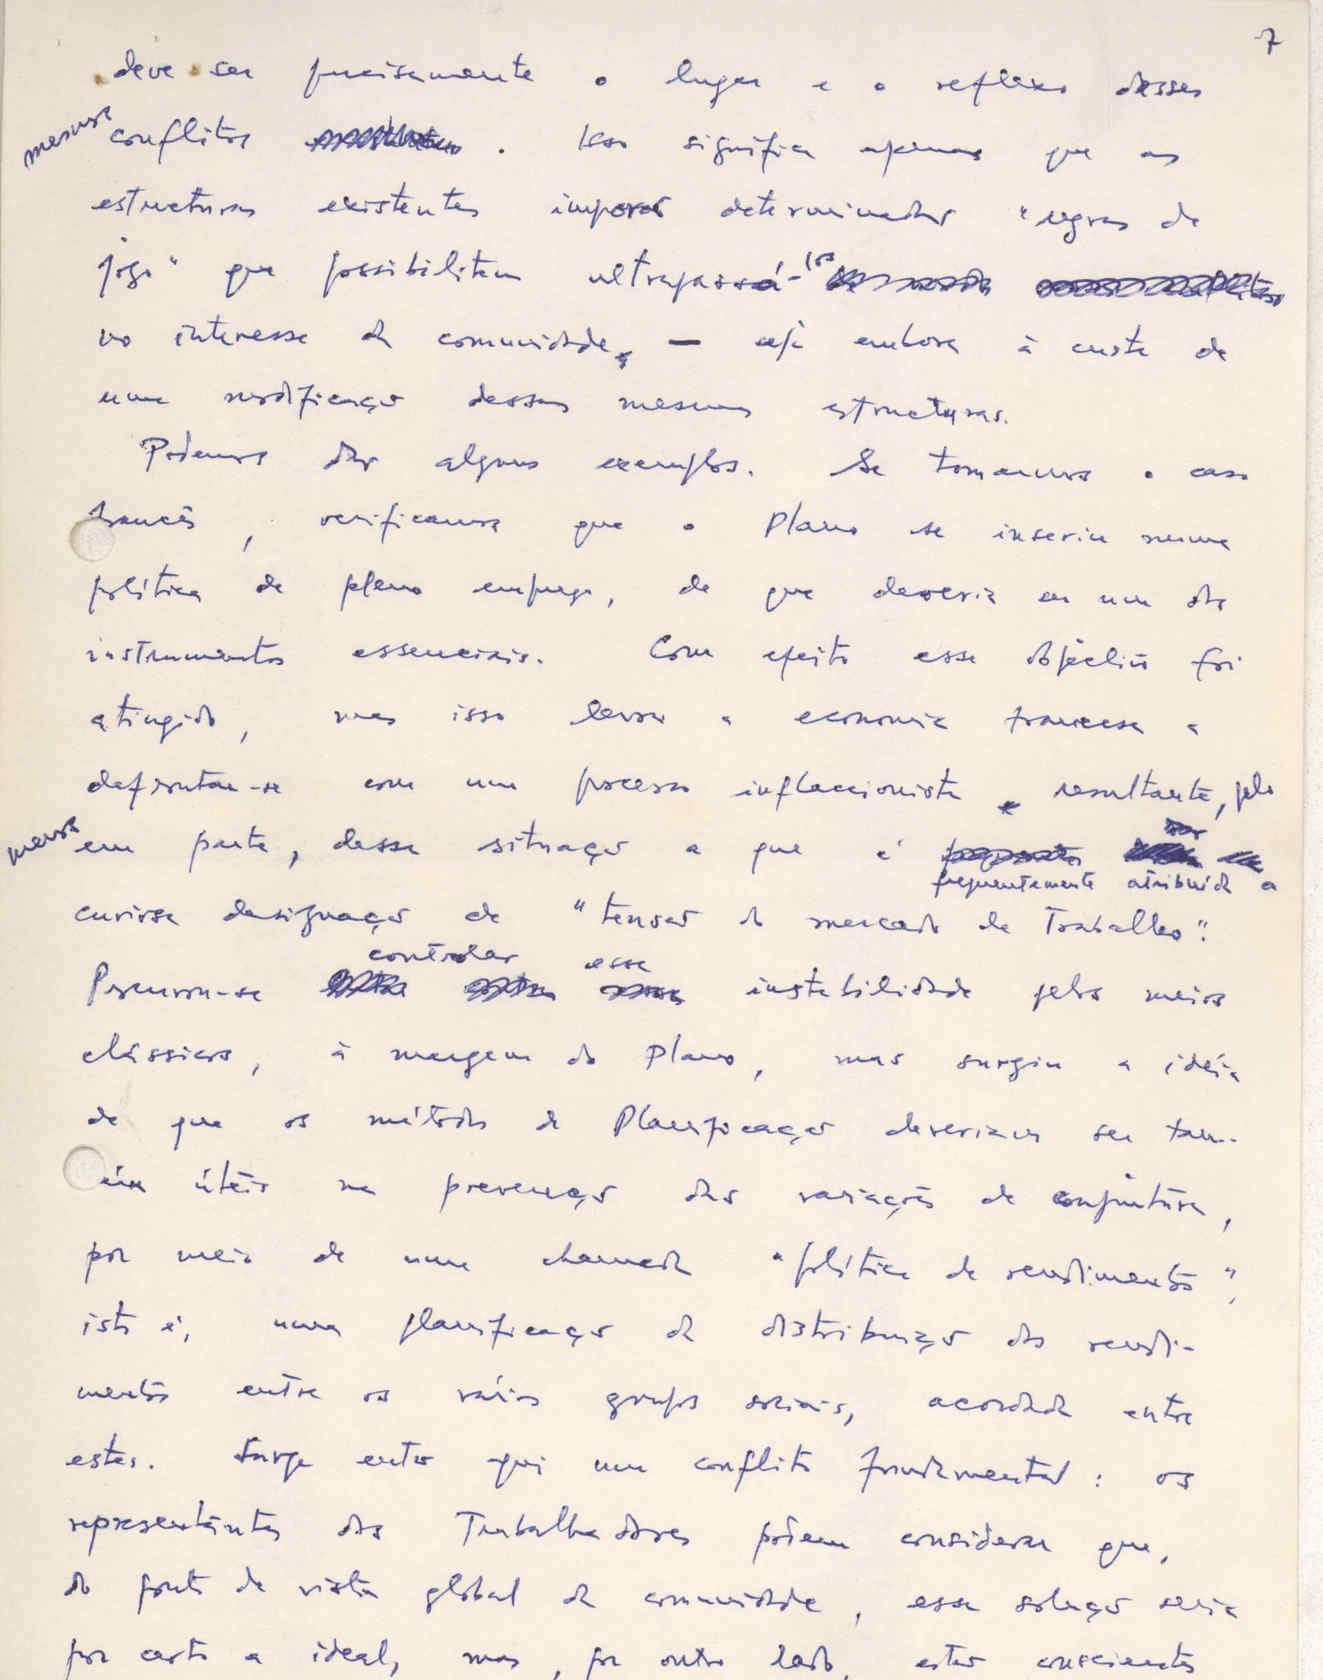 7
deve ser precisamente o lugar e o reflexo desses
mesmos conflitos. Isso significa apenas que as
estructuras existentes impõem determinadas "regras de
jogo" que possibilitem ultrapassá-los
no interesse da comunidade, — seja embora à custa de
uma modificação dessas mesmas estructuras.
Podemos dar alguns exemplos. Se tomarmos o caso
francês, verificamos que o Plano se inseriu numa
política de pleno emprego, de que deveria ser um dos
instrumentos essenciais. Com efeito esse objectivo foi
atingido, mas isso levou a economia francesa a
defrontar-se com um processo inflaccionista resultante, pelo
menos em parte, dessa situação a que é
frequentemente atribuída a
curiosa designação de "tensão do mercado de Trabalho".
controlar essa
Procurou-se instabilidade pelos meios
clássicos, à margem do Plano, mas surgiu a idéia
de que os métodos de Planificação deveriam ser tam-
bém úteis na prevenção das variações de conjuntura,
por meio de uma chamada "política de rendimentos",
isto é, uma planificação da distribuição dos rendi-
mentos entre os vários grupos sociais, acordada entre
estes. Surge então aqui um conflito fundamental: os
representantes dos Trabalhadores podem considerar que,
do ponto de vista global da comunidade, essa solução seria
por certo a ideal, mas, por outro lado, estão conscientes